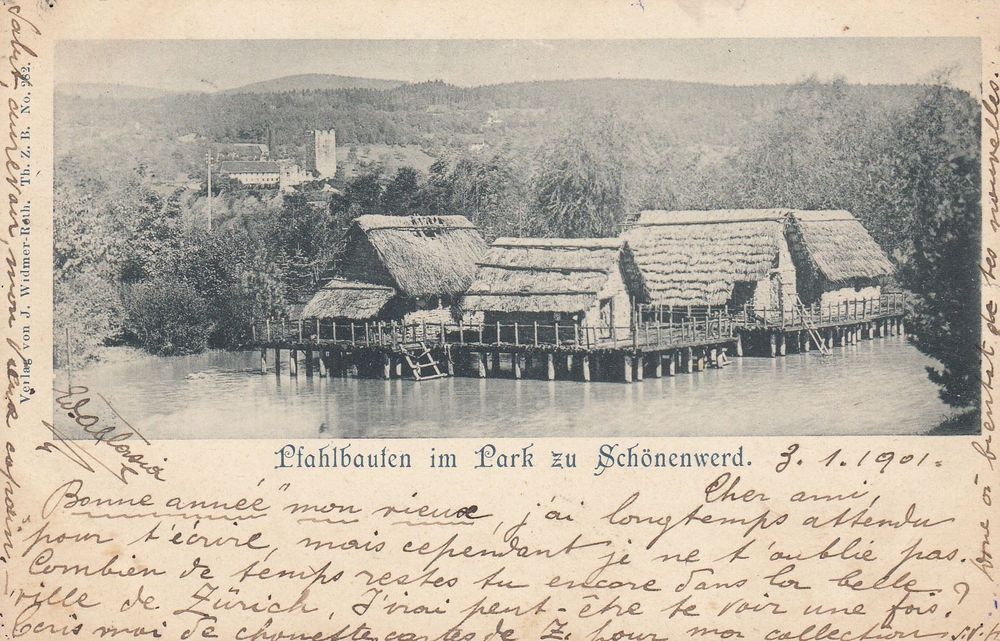 Pfahlbauten im Park zu Schönenwerd.
3.1.1901.
Cher ami,
"Bonne année" mon vieux, j'ai longtemps attendu
pour t'écrire, mais cependant je ne t'oublie pas.
Combien de temps restes tu encore dans la belle
ville de Zürich, J'irai peut-être te voir une fois?
Ecris moi de chouettes cartes de Z. pour ma collection.
donc à bientôt de tes nouvelles.
Salut, au revoir, mon vieux
Verlag von J. Widmer-Roth. Th. Z. B. No. 982.